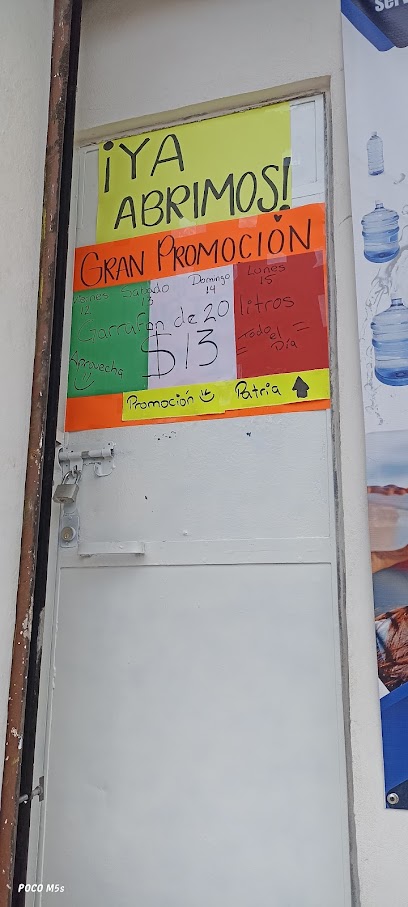 ¡YA
ABRIMOS!
GRAN PROMOCIÓN
Viernes Sabado Domingo Lunes
12 13 14 15
Garrafon de 20 litros
Aprovecha $13 =Todo el Día=
Promoción Patria
POCO M5s